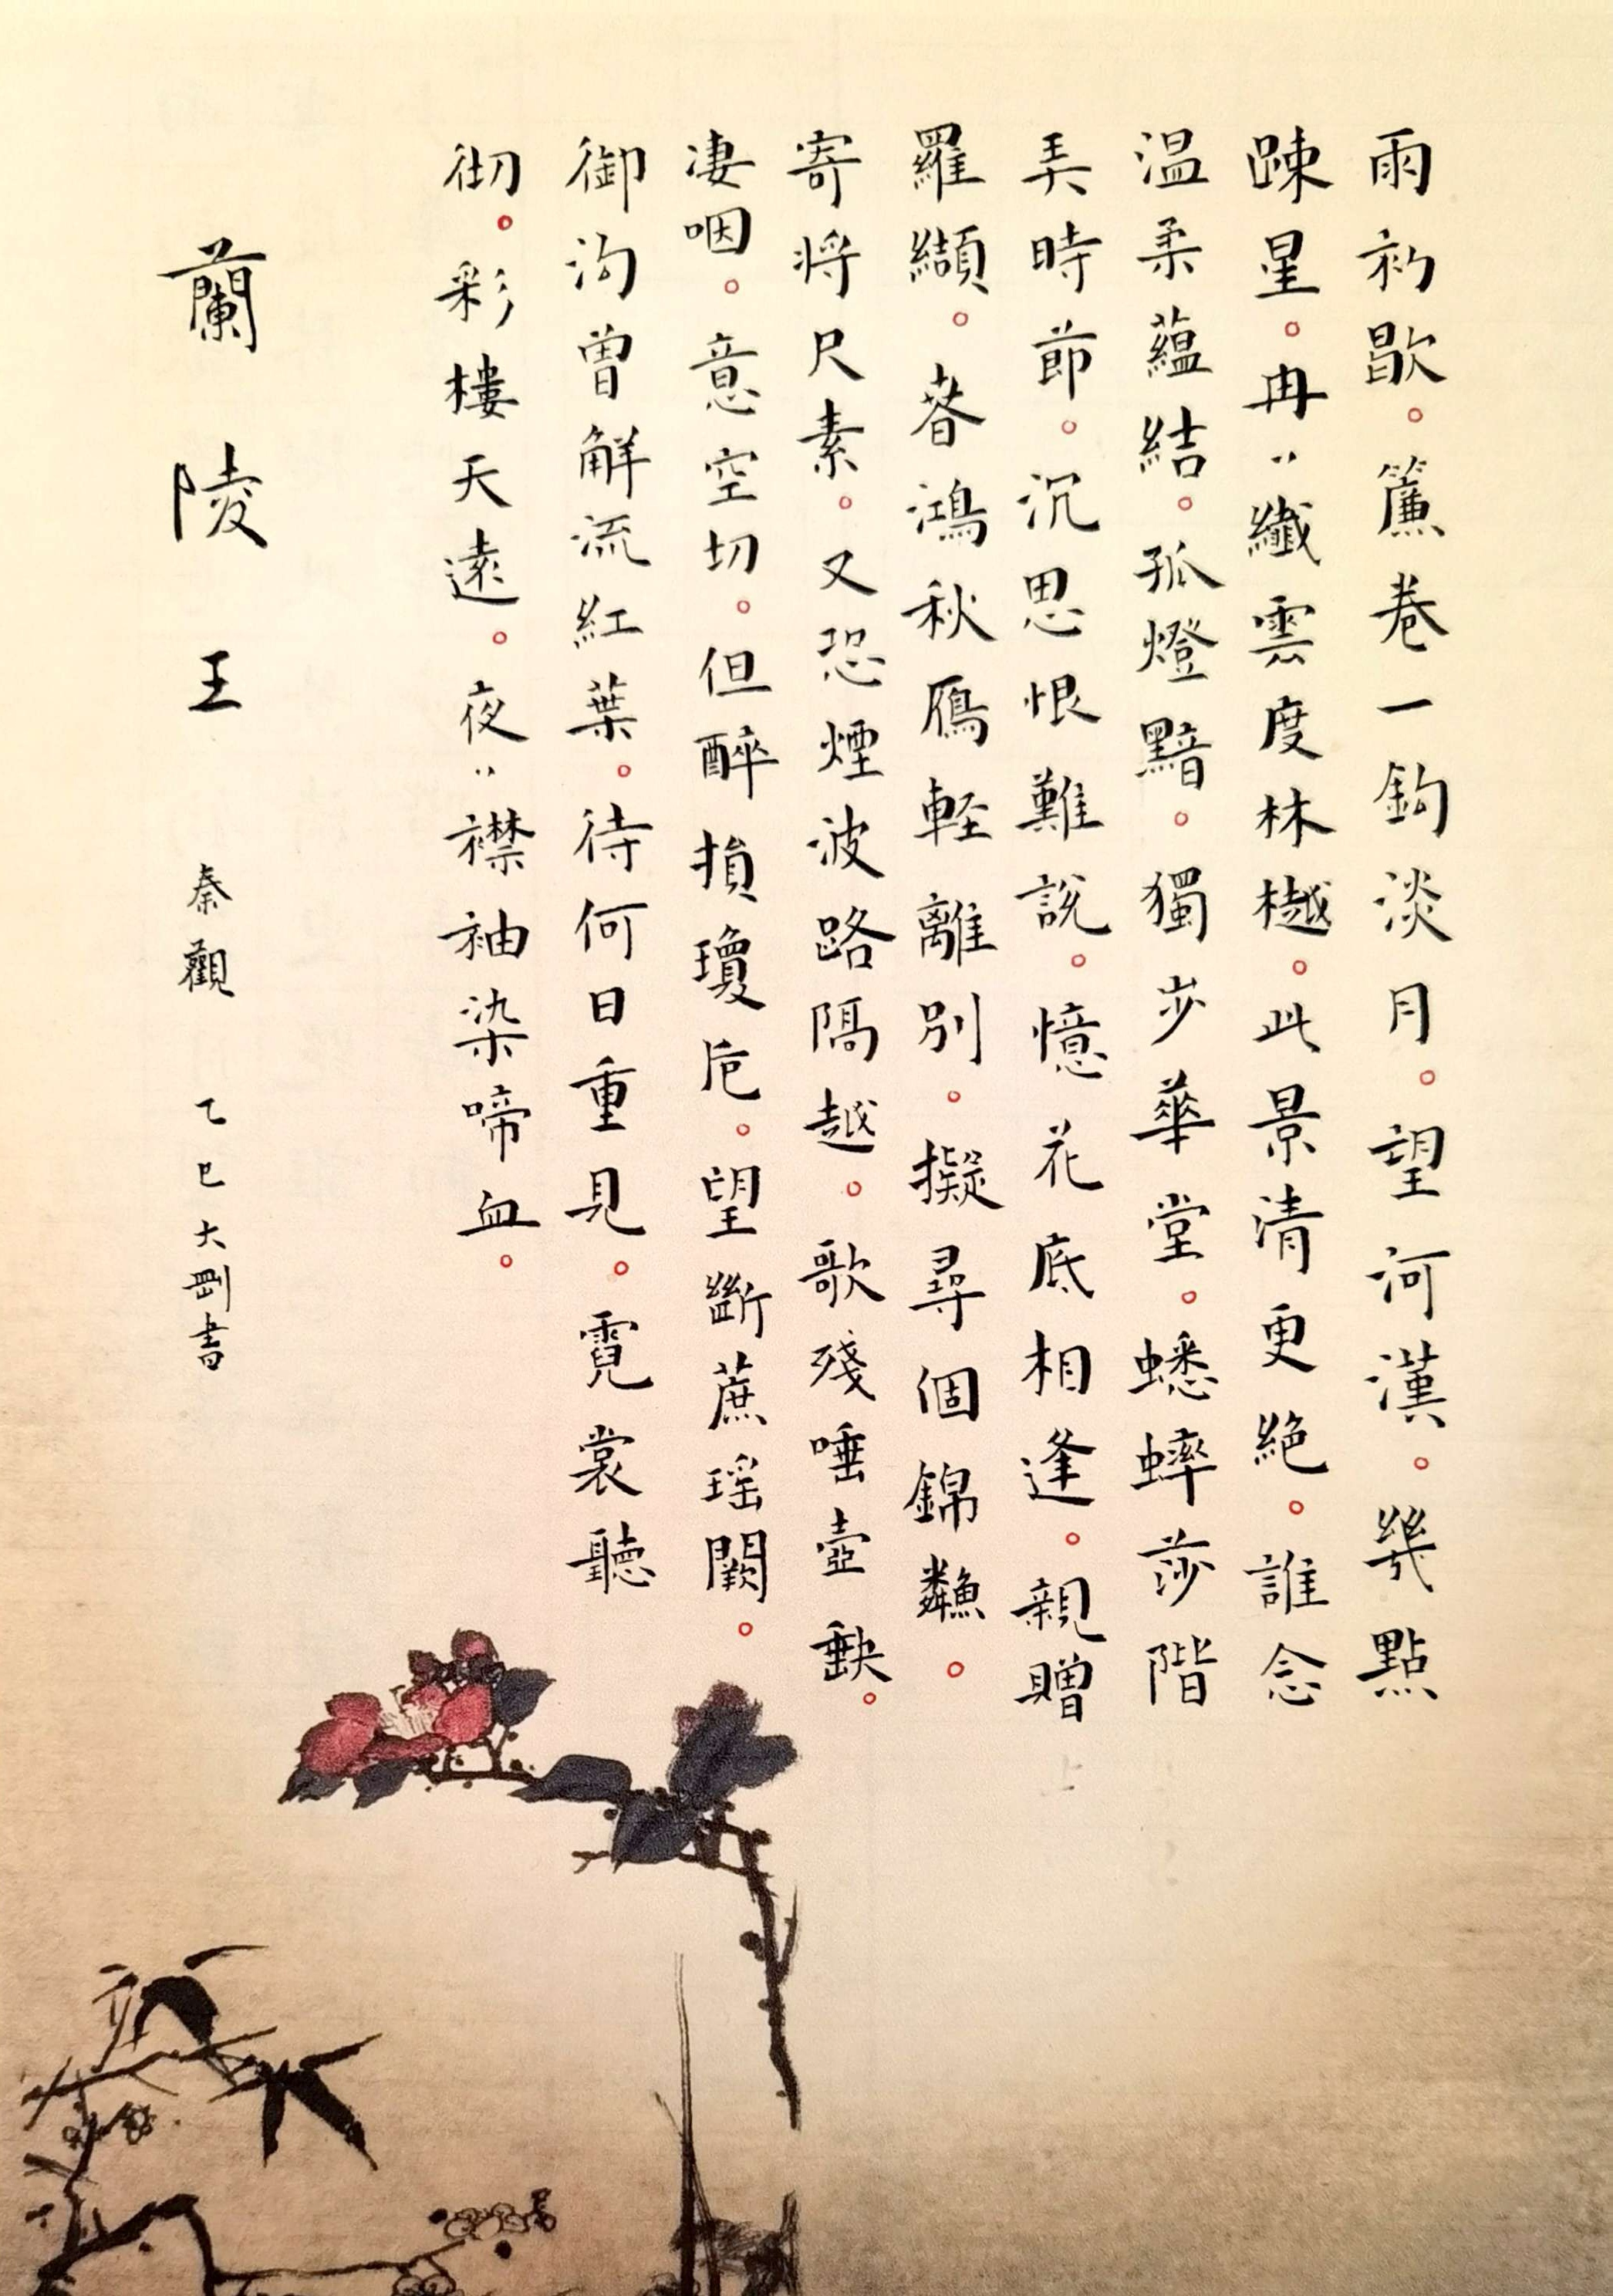 雨初歇。簾卷一鈎淡月。望河漢。幾點
踈星。冉〻纖雲度林樾。此景清更絶。誰念
温柔蘊結。孤燈黯。獨步華堂。蟋蟀莎階
弄時節。沉思恨難說。憶花底相逢。親贈
羅纈。春鴻秋鴈輕離別。擬尋個錦鱗。
寄將尺素。又恐煙波路隔越。歌殘唾壺缺。
凄咽。意空切。但醉損瓊卮。望斷蔗瑶闕。
御沟曾解流紅葉。待何日重見。霓裳聽
彻。彩樓天遠。夜〻襟袖染啼血。
蘭陵王 秦觀 乙巳大剛書